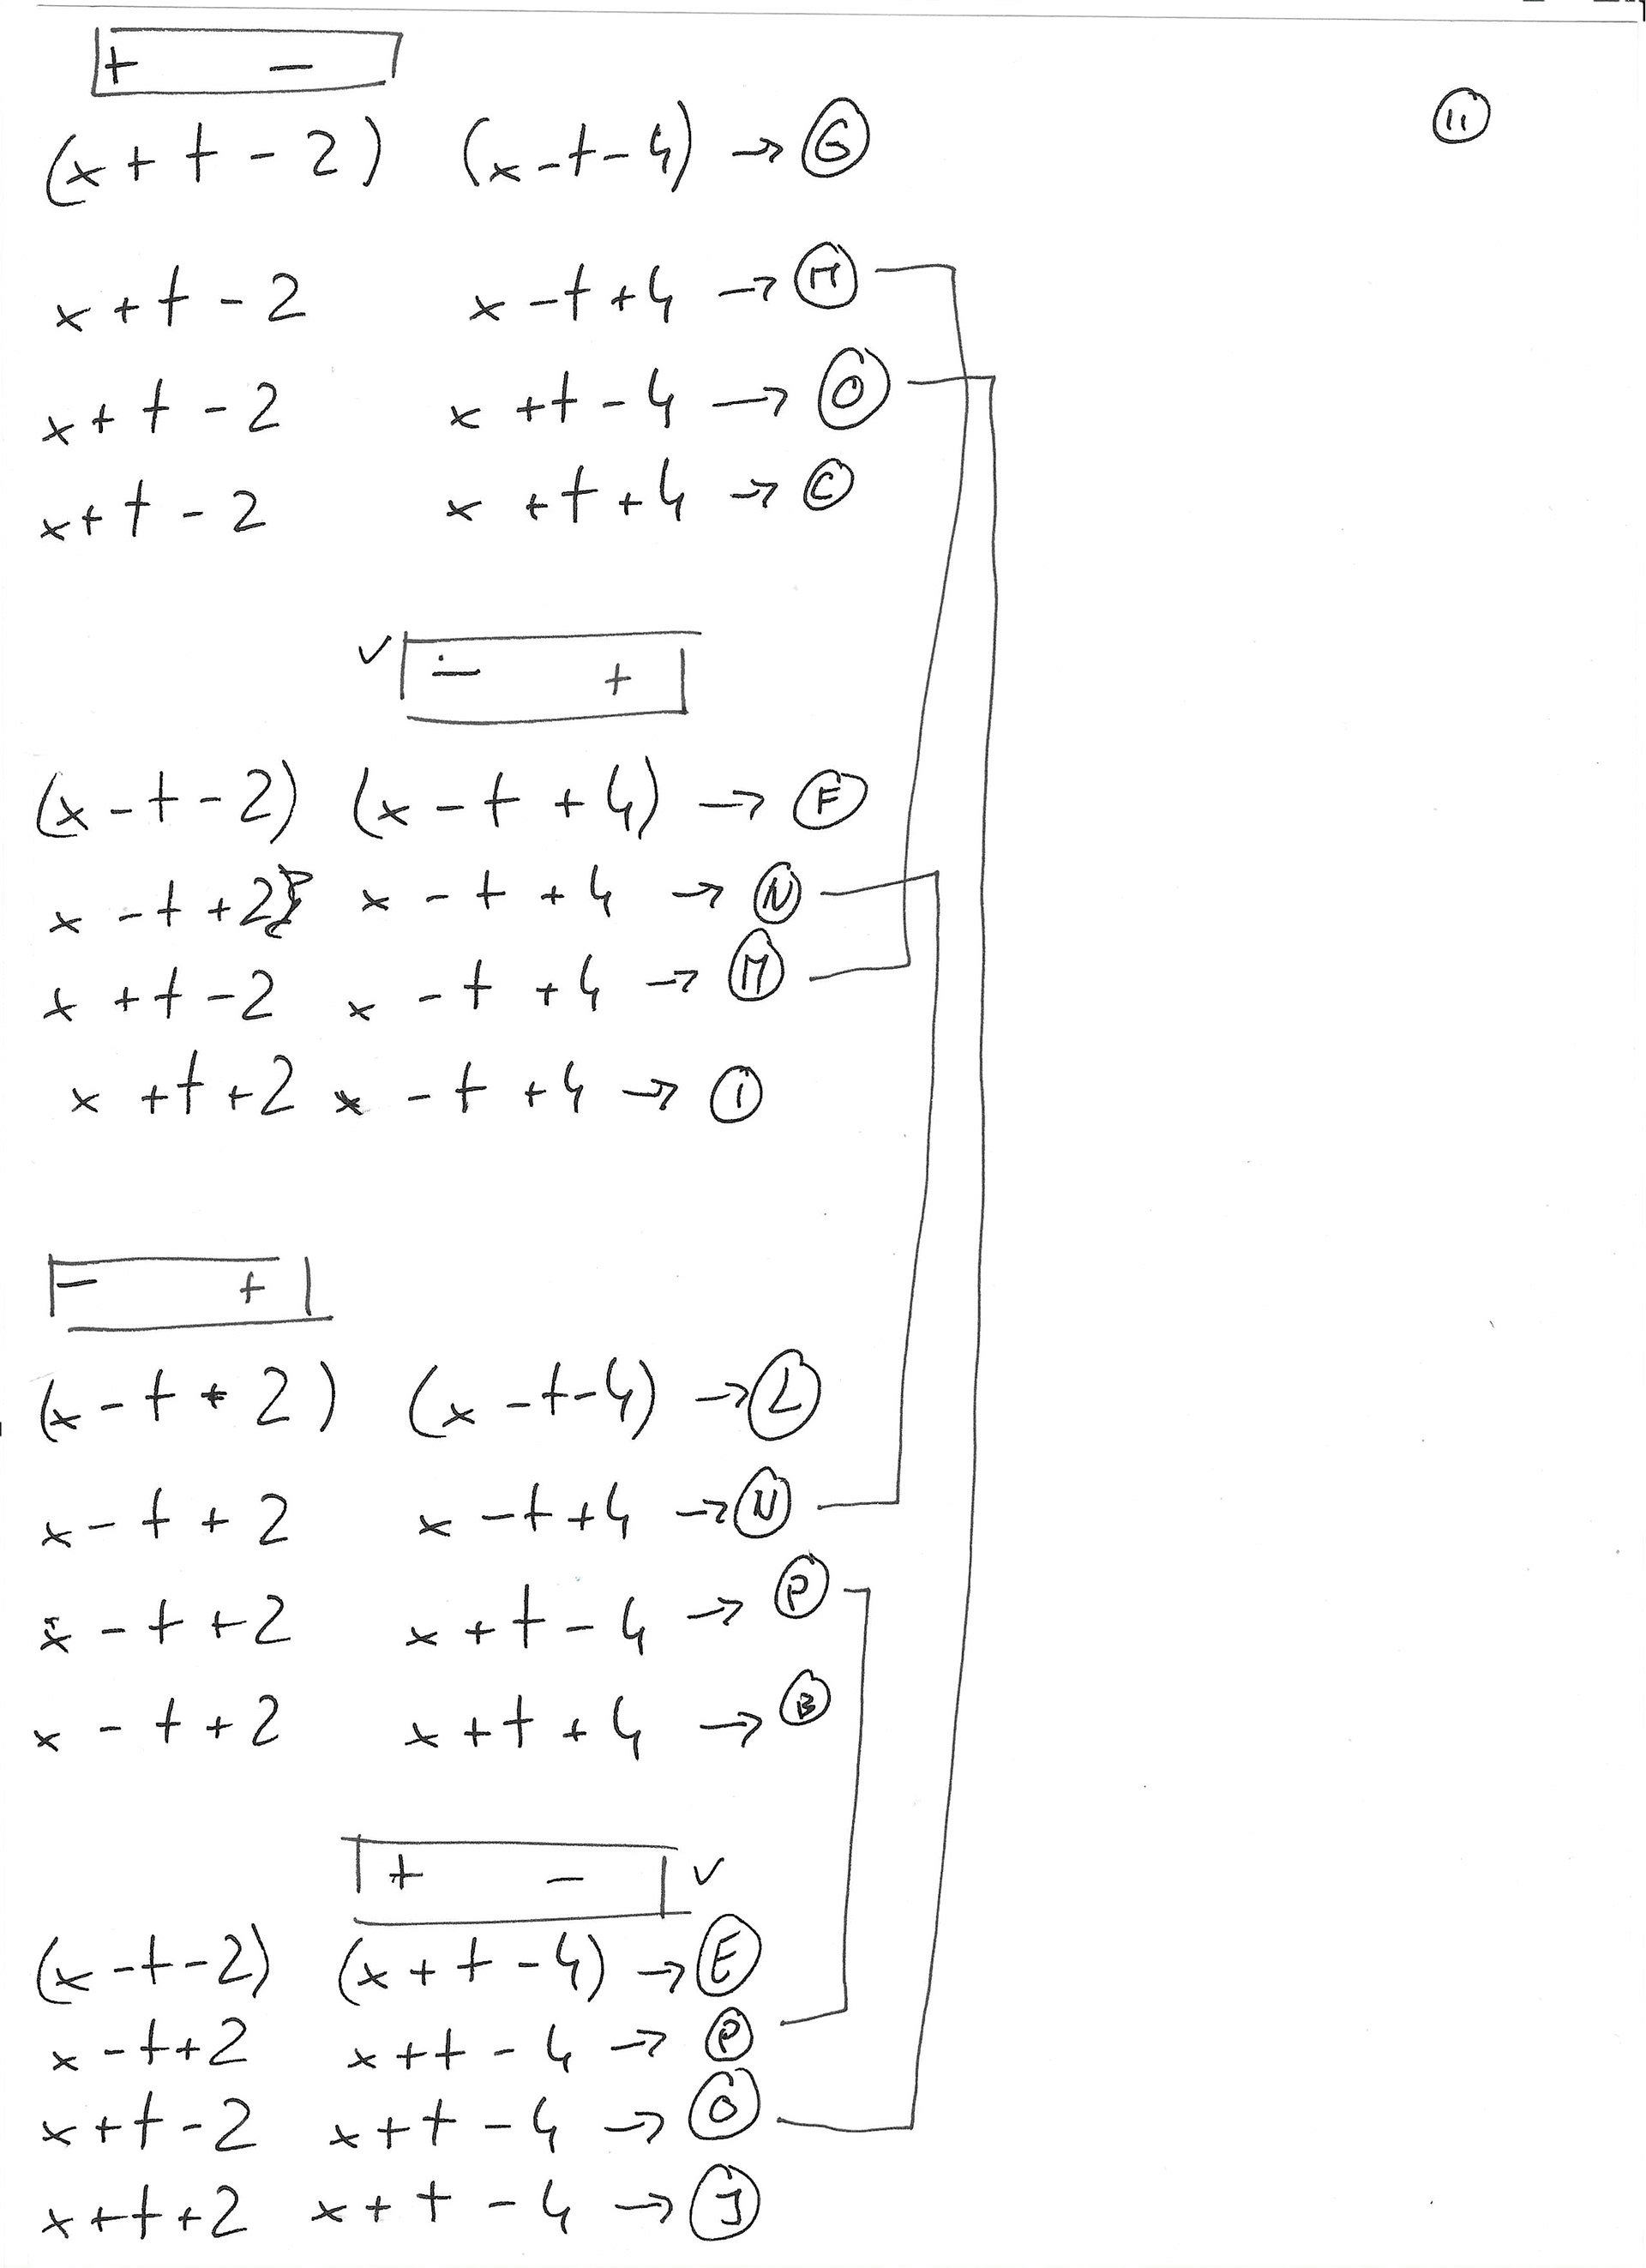 + −
(x + t − 2) (x − t − 4) → G
11
x + t − 2 x − t + 4 → M
x + t − 2 x + t − 4 → O
x + t − 2 x + t + 4 → C
✓ − +
(x − t − 2) (x − t + 4) → F
x − t + 2 x − t + 4 → N
x + t − 2 x − t + 4 → M
x + t + 2 x − t + 4 → I
− +
(x − t + 2) (x − t − 4) → L
x − t + 2 x − t + 4 → N
x − t + 2 x + t − 4 → P
x − t + 2 x + t + 4 → B
+ − ✓
(x − t − 2) (x + t − 4) → E
x − t + 2 x + t − 4 → P
x + t − 2 x + t − 4 → O
x + t + 2 x + t − 4 → J